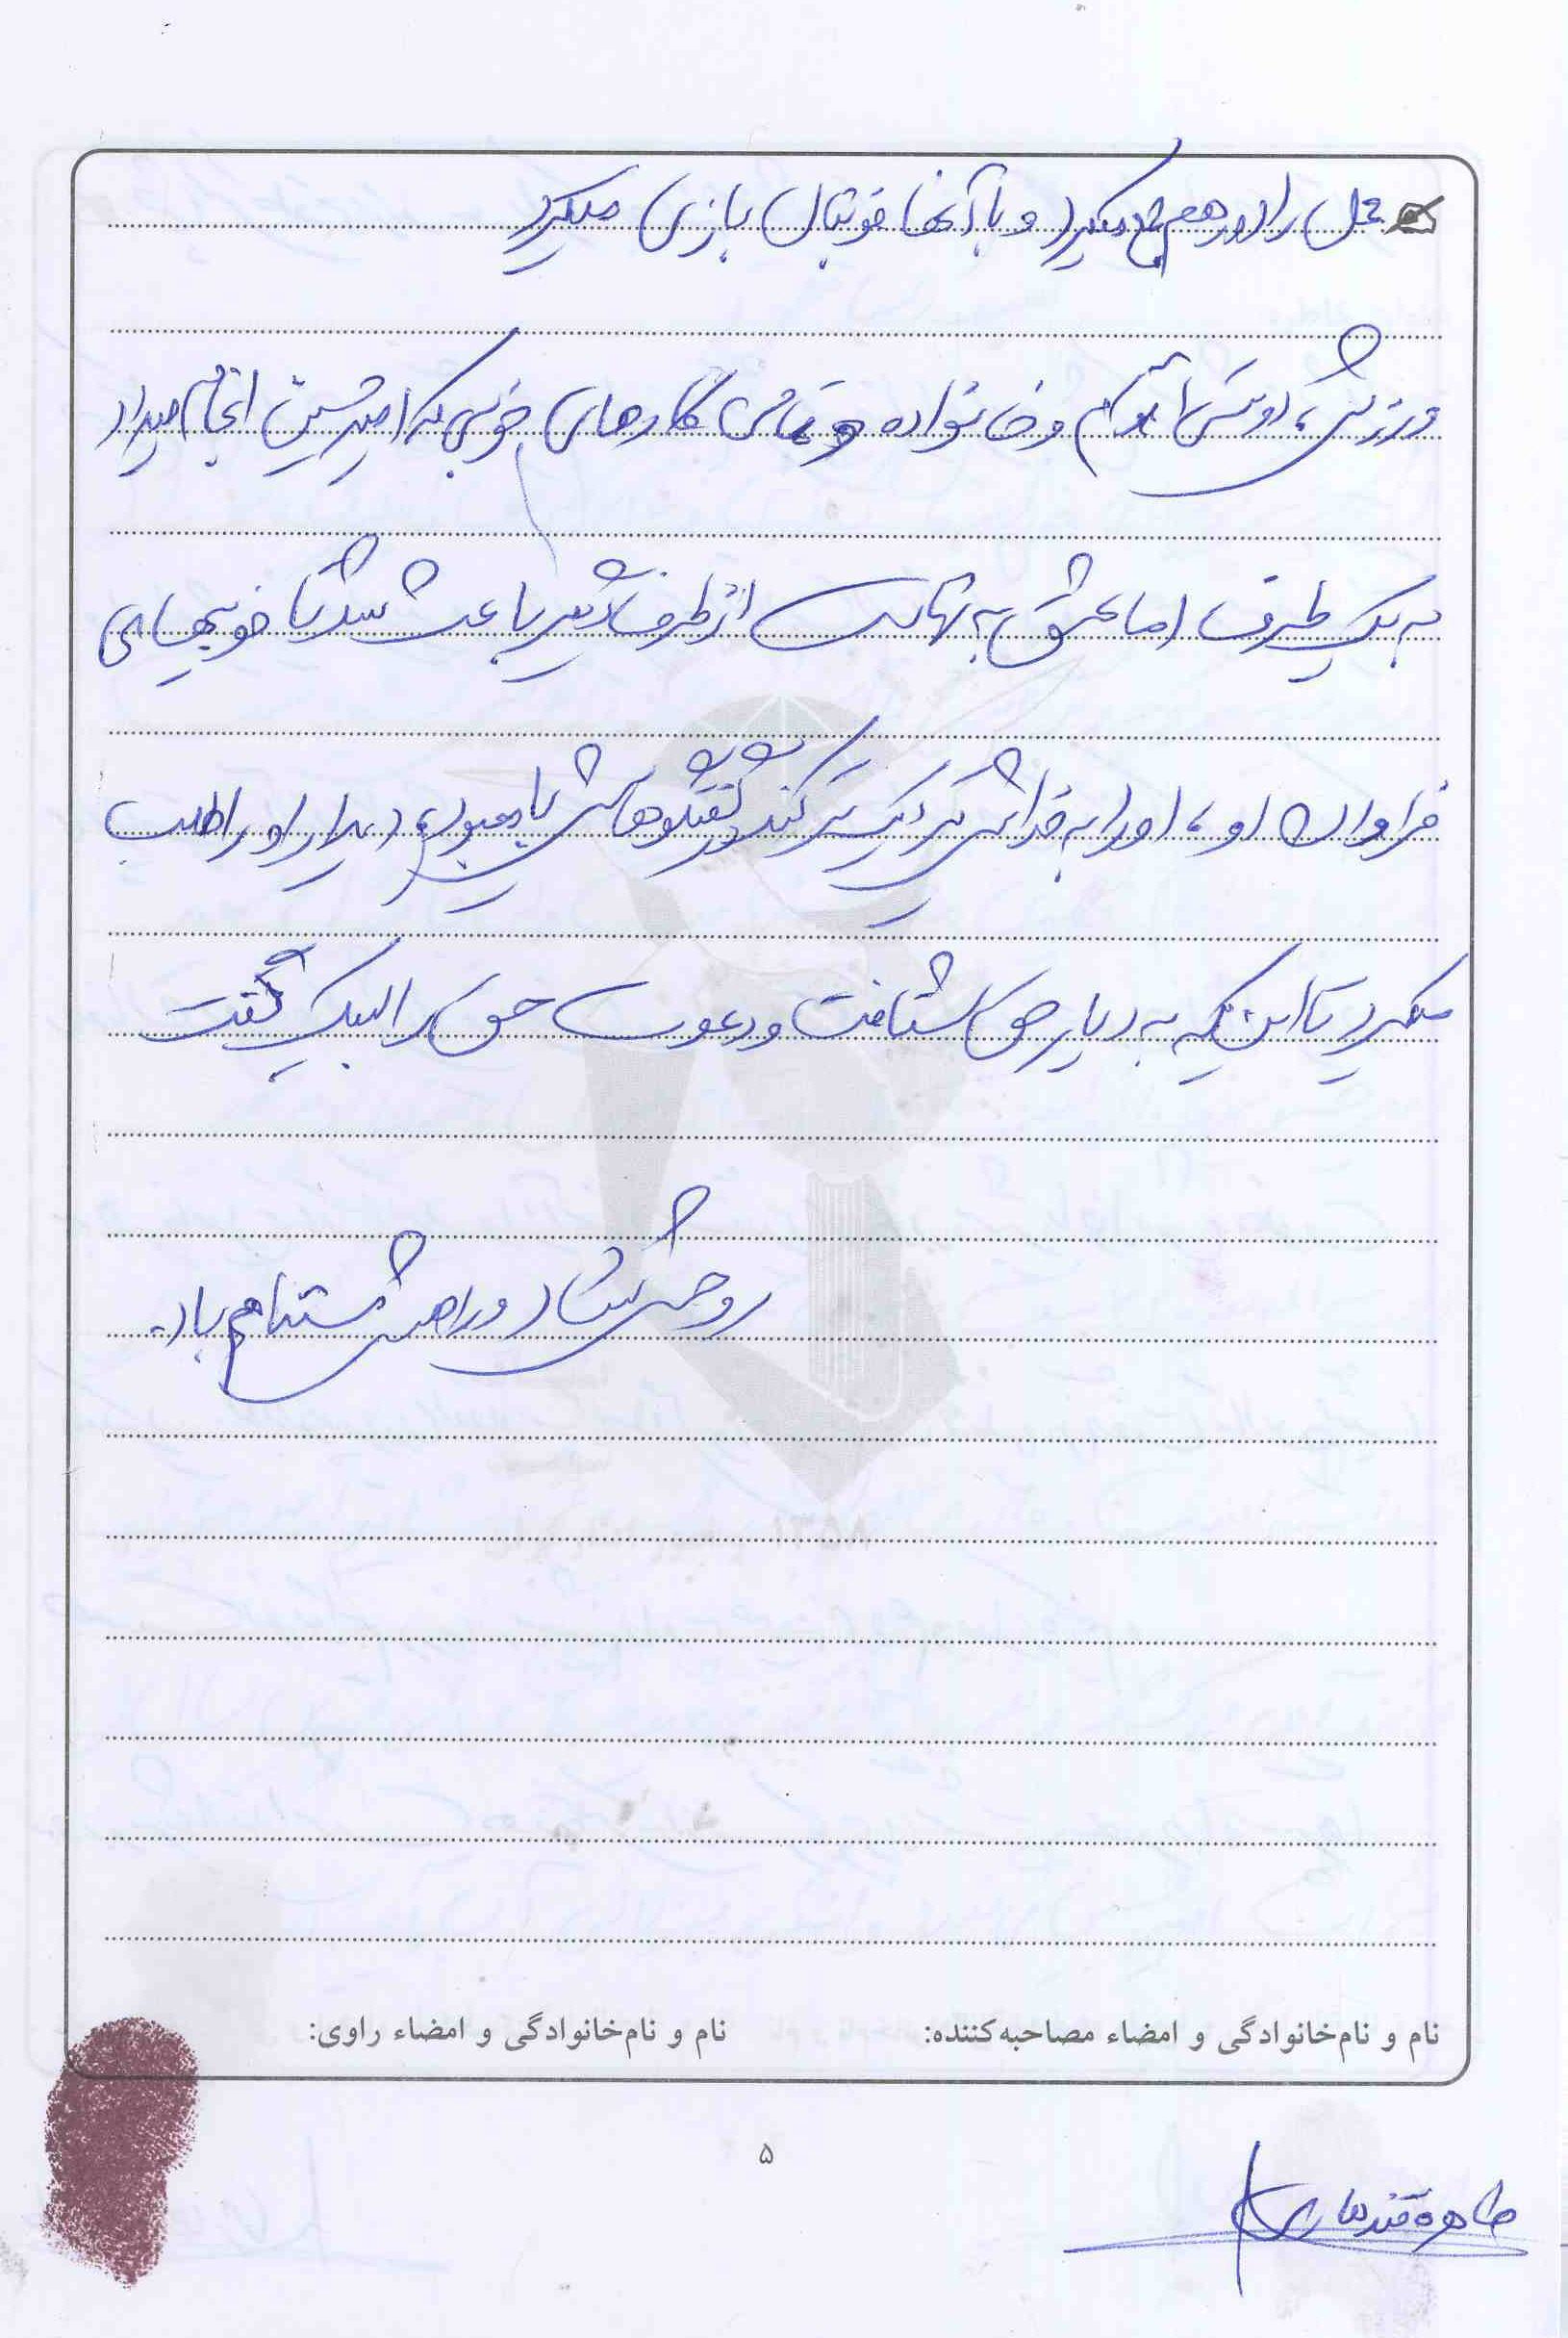 محل را دور هم جمع میکرد و با آنها فوتبال بازی میکرد
ورزش، دوستی با مردم و خانواده و تمامی کارهای خوبی که امیرحسین انجام میداد
به یک طرف اما عشق به شهادت از طرف دیگر باعث شد تا خوبیهای
فراوان او، او را به خدا نزدیک تر کند در گفتگوهایش با معبود، دیدار او را طلب
میکرد تا این که به دیار حق شتافت و دعوت حق را لبیک گفت
روحش شاد و راهش مستدام باد.
نام و نام‌خانوادگی و امضاء مصاحبه‌کننده: نام و نام‌خانوادگی و امضاء راوی:
۵
طاهره قندهاری